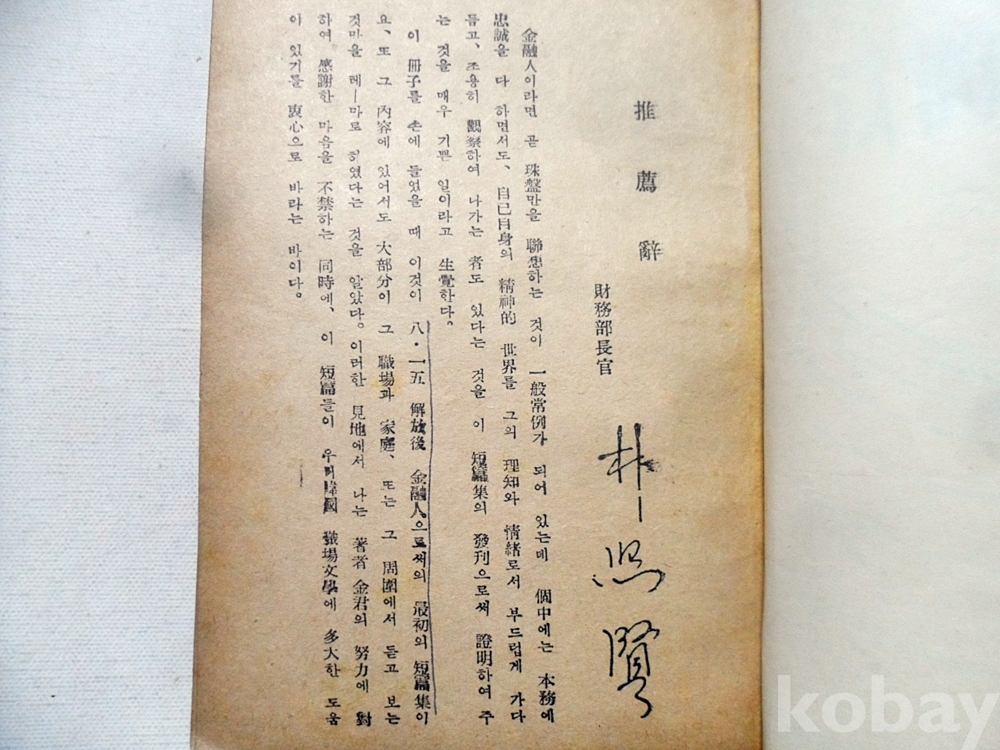 推薦辭
財務部長官
朴熙賢
金融人이라면 곧 珠盤만을 聯想하는 것이 一般常例가 되어 있는데 個中에는 本務에
忠誠을 다 하면서도、自己自身의 精神的 世界를 그의 理知와 情緖로서 부드럽게 가다
듬고、조용히 觀察하여 나가는 者도 있다는 것을 이 短篇集의 發刊으로써 證明하여 주
는 것을 매우 기쁜 일이라고 生覺한다。
이 冊子를 손에 들었을 때 이것이 八・一五 解放後 金融人으로써의 最初의 短篇集이
요、또 그 內容에 있어서도 大部分이 그 職場과 家庭、또는 그 周圍에서 듣고 보는
것마을 테ー마로 하였다는 것을 알았다。이러한 見地에서 나는 著者 金君의 努力에 對
하여 感謝한 마음을 不禁하는 同時에、이 短篇들이 우리韓國 職場文學에 多大한 도움
이 있기를 衷心으로 바라는 바이다。
kobay